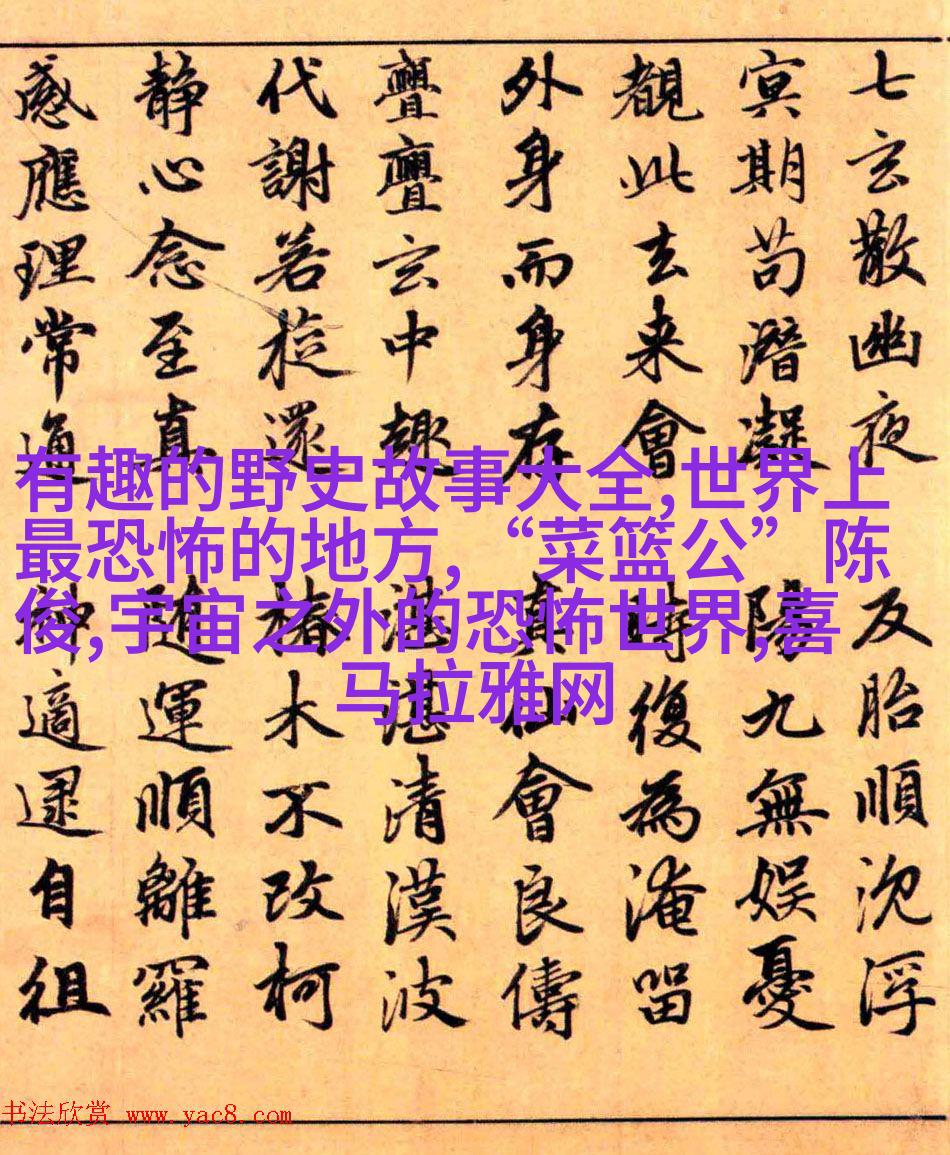 七玄散幽夜反胎順沉浮
冥期苟潛凝陽九無娱憂
覩此去来會時復為淹留
外身而身存真仙會良儔
亹亹玄中趣湛湛清漢波
代謝若旋還椿木不改柯
静心念至真隨運順離羅
感應理常通神適逮自徂
有趣的野史故事大全,世界上
最恐怖的地方,“菜篮公”陈
俊,宇宙之外的恐怖世界,喜
马拉雅网
书法欣赏 www.yac8.com